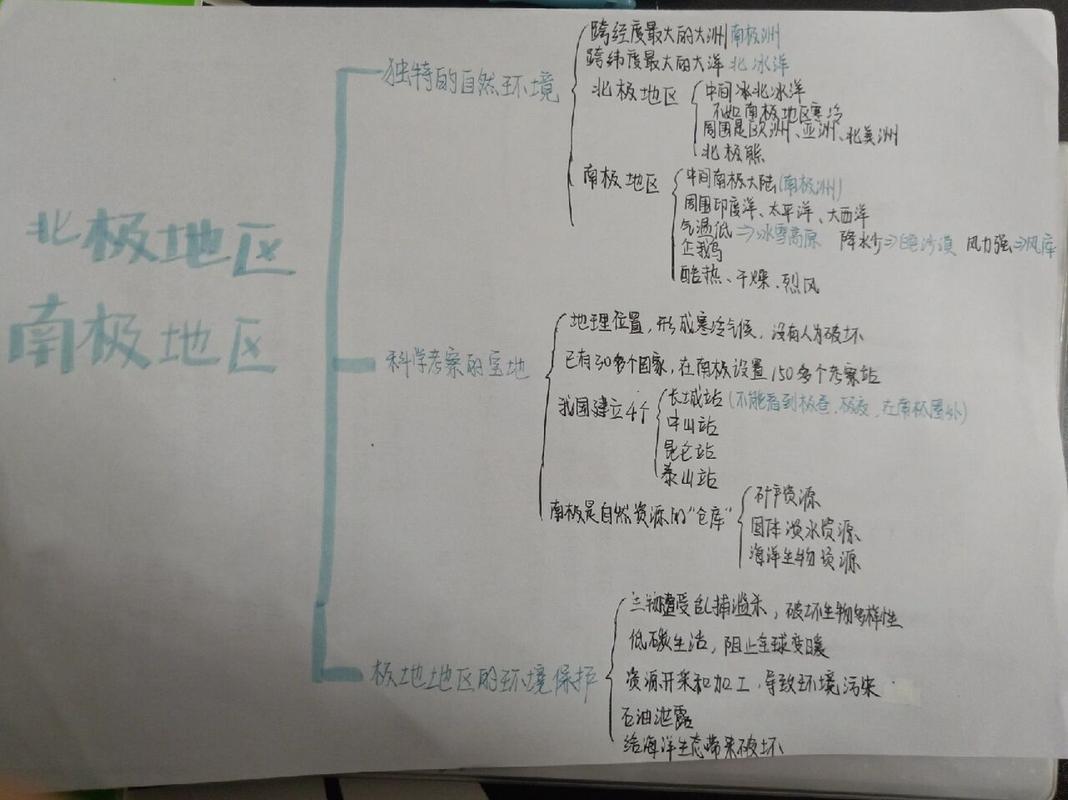 北极地区
南极地区
独特的自然环境
跨经度最大的大洲南极洲
跨纬度最大的大洋 北冰洋
北极地区
中间冰北冰洋
不如南极地区寒冷
周围是欧洲、亚洲、北美洲
北极熊
南极地区
中间南极大陆(南极洲)
周围印度洋、太平洋、大西洋
气温低⇒冰雪高原 降水少⇒白色沙漠 风力强⇒风库
企鹅
酷热、干燥、烈风
科学考察的宝地
地理位置,形成寒冷气候,没有人为破坏
已有30多个国家,在南极设置150多个考察站
我国建立4个
长城站(不能看到极昼、极夜,在南极圈外)
中山站
昆仑站
泰山站
南极是自然资源的“仓库”
矿产资源
固体淡水资源
海洋生物资源
极地地区的环境保护
生物遭受乱捕滥杀,破坏生物多样性
低碳生活,阻止全球变暖
资源开采和加工,导致环境污染
石油泄露
给海洋生态带来破坏